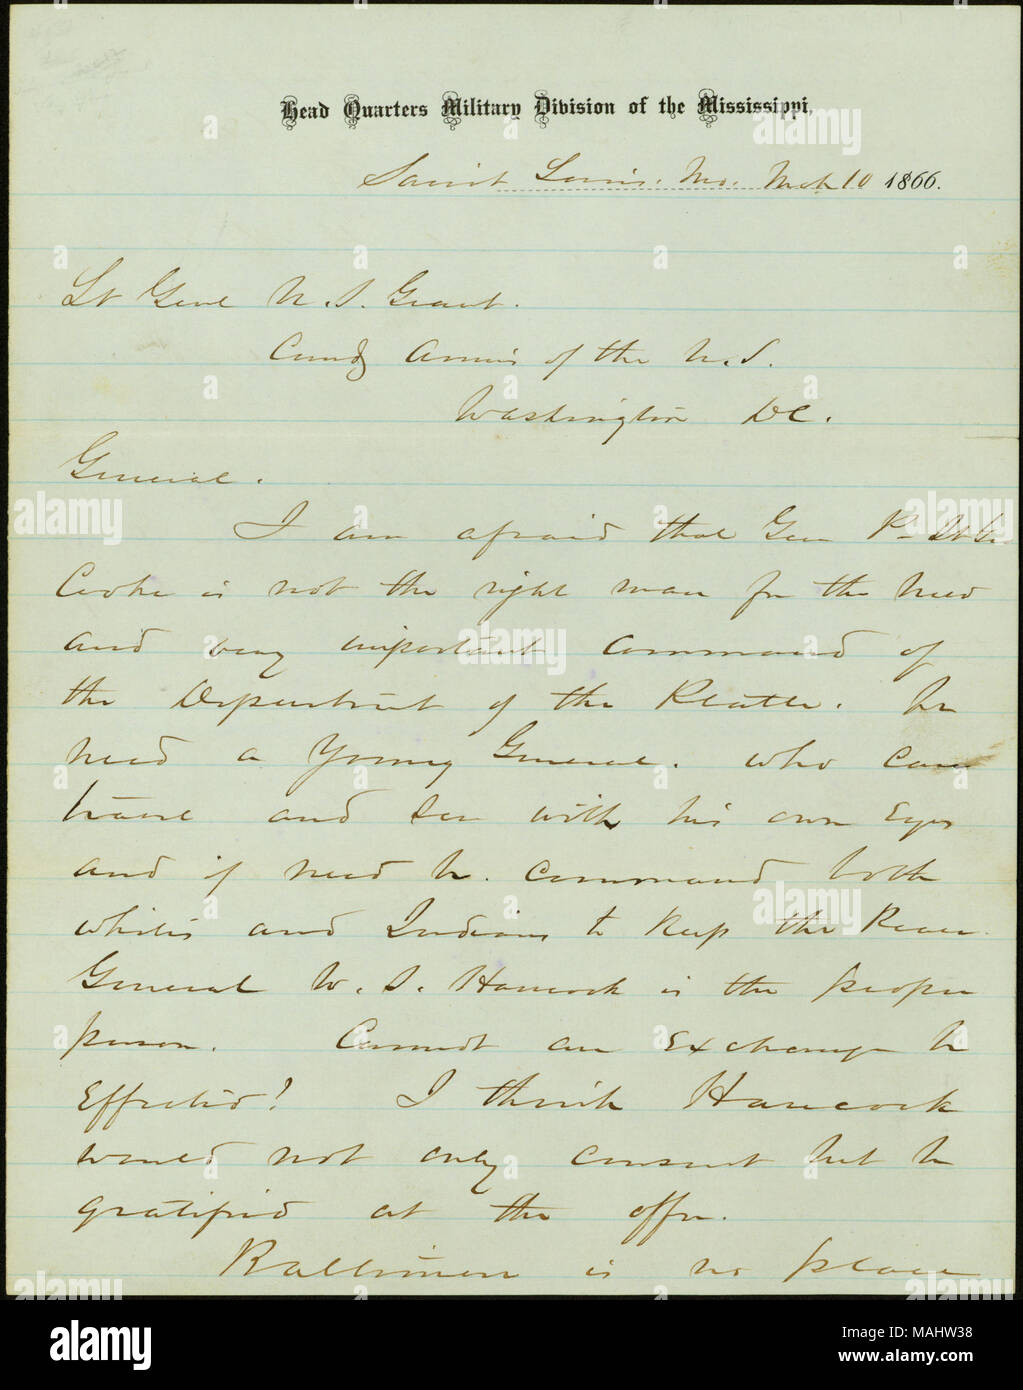 Head Quarters Military Division of the Mississippi,
Saint Louis, Mo. Mch 10 1866.
Lt Genl U. S. Grant.
Comdg Armies of the U.S.
Washington DC.
General.
I am afraid that Gen P. St Geo
Cooke is not the right man for the new
and very important command of
the Department of the Platte. We
need a Young General. who can
travel and see with his own Eyes
and if need be. command both
whites and Indians to keep the Peace.
General W. S. Hancock is the proper
person. Cannot an Exchange be
Effected? I think Hancock
would not only consent but be
gratified at the offer.
Baltimore is no place
alamy
Image ID: MAHW38
www.alamy.com